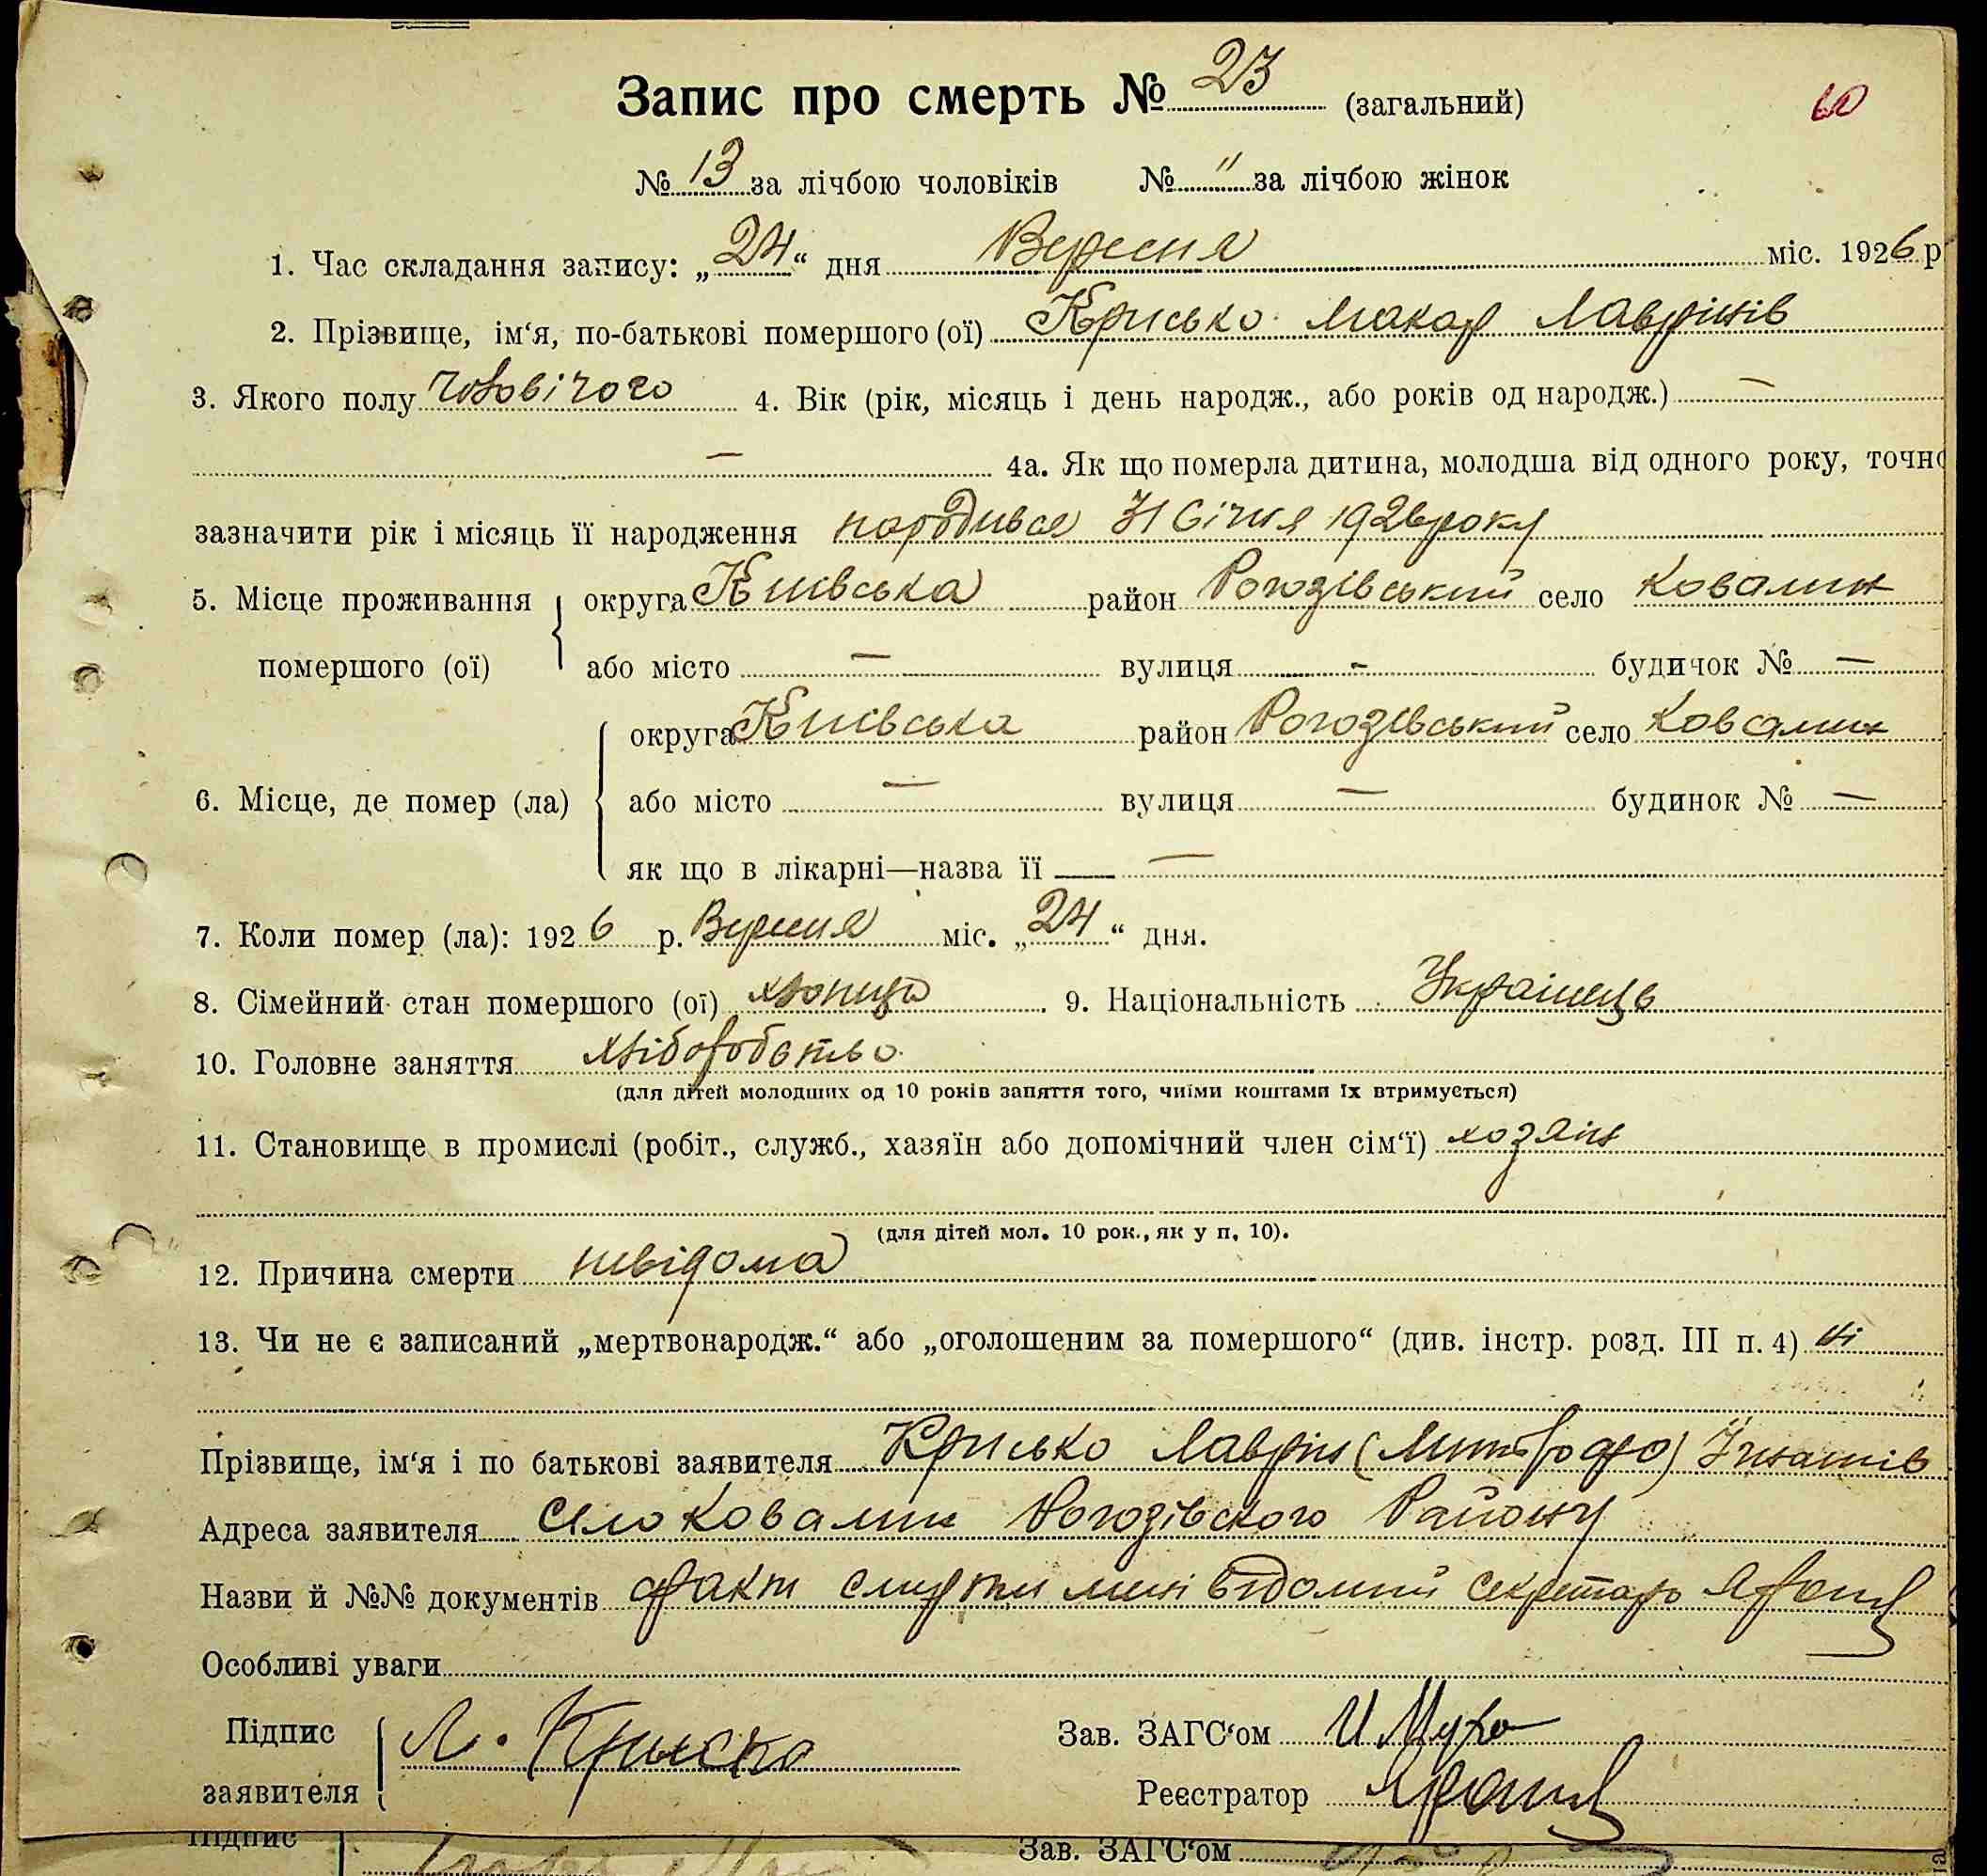 Запис про смерть № 23 (загальний)
60
№ 13 за лічбою чоловіків № " за лічбою жінок
1. Час складання запису: „24“ дня Вересня міс. 1926 р
2. Прізвище, ім‘я, по-батькові помершого (ої) Крисько Макар Лаврінів
3. Якого полу чоловічого 4. Вік (рік, місяць і день народж., або років од народж.) —
— 4а. Як що померла дитина, молодша від одного року, точно
зазначити рік і місяць її народження народився 31 Січня 1926 року
5. Місце проживання округа Київська район Рогозівський село Ковалин
помершого (ої) або місто — вулиця - будичок № —
округа Київська район Рогозівський село Ковалин
6. Місце, де помер (ла) або місто — вулиця — будинок № —
як що в лікарні—назва її —
7. Коли помер (ла): 1926 р. Вересня міс. „24“ дня.
8. Сімейний стан помершого (ої) хлопець 9. Національність Українець
10. Головне заняття хліборобство
(для дітей молодших од 10 років заняття того, чиїми коштами їх втримується)
11. Становище в промислі (робіт., служб., хазяїн або допомічний член сім‘ї) хозяін
(для дітей мол. 10 рок., як у п. 10).
12. Причина смерти невідома
13. Чи не є записаний „мертвонародж.“ або „оголошеним за помершого“ (див. інстр. розд. III п. 4) ні
Прізвище, ім‘я і по батькові заявителя Крисько Лаврін
Адреса заявителя село Ковалин Рогозівского Району
Назви й №№ документів факт смерти мені відомий секретарь
Особливі уваги
Підпис Л. Крисько Зав. ЗАГС‘ом И Муха
заявителя Реєстратор
Підпис Зав. ЗАГС‘ом